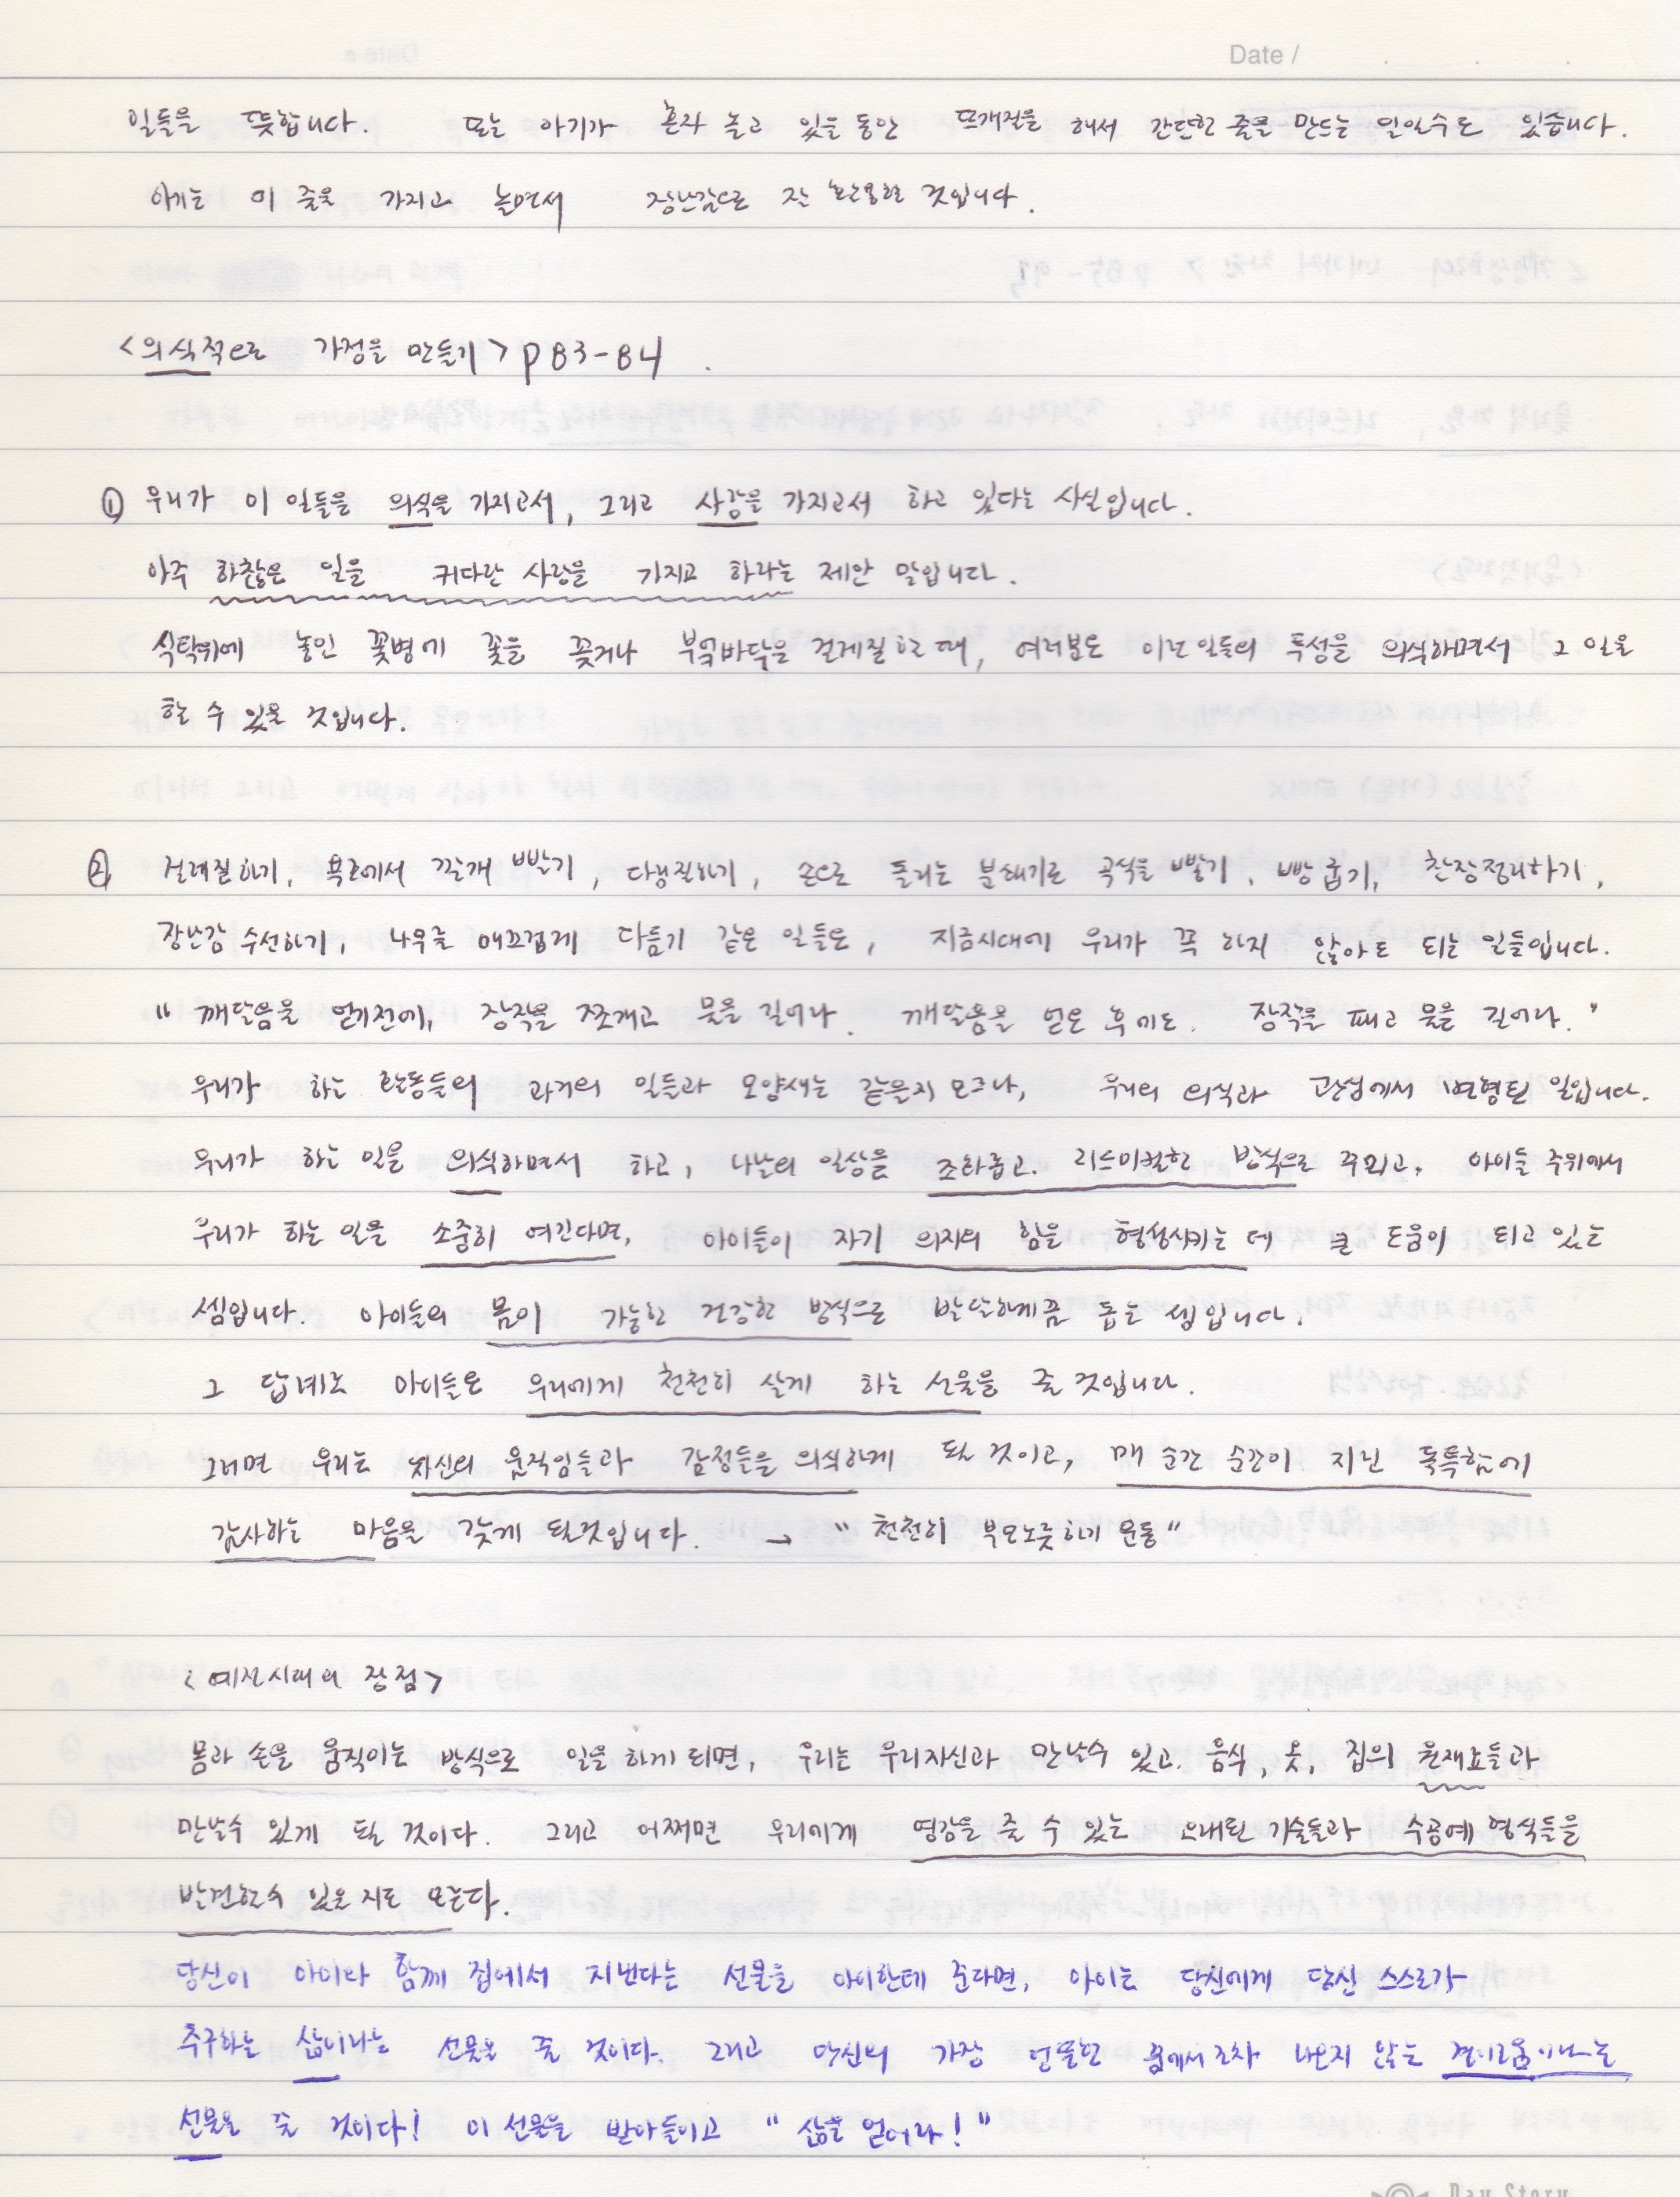 Date /
일들을 뜻합니다. 또는 아기가 혼자 놀고 있을 동안 뜨개질을 해서 간단한 줄을 만드는 일일수도 있습니다.
아기는 이 줄을 가지고 놀면서 장난감으로 잘 활용할 것입니다.
<의식적으로 가정을 만들기> p 83-84.
① 우리가 이 일들을 의식을 가지고서, 그리고 사랑을 가지고서 하고 있다는 사실입니다.
아주 하찮은 일을 커다란 사랑을 가지고 하라는 제안 말입니다.
식탁위에 놓인 꽃병에 꽃을 꽂거나 부엌바닥을 걸레질 할 때, 여러분은 이런 일들의 특성을 의식하면서 그 일을
할 수 있을 것입니다.
② 걸레질하기, 욕조에서 깔개 빨기, 다림질하기, 손으로 돌리는 분쇄기로 곡식을 빻기, 빵굽기, 찬장정리하기,
장난감 수선하기, 나무를 매끄럽게 다듬기 같은 일들은, 지금시대에 우리가 꼭 하지 않아도 되는 일들입니다.
" 깨달음을 얻기전에, 장작을 쪼개고 물을 길어라. 깨달음을 얻은 후에도. 장작을 패고 물을 길어라."
우리가 하는 활동들의 과거의 일들과 모양새는 같을지 모르나, 우리의 의식과 관점에서 변형된 일입니다.
우리가 하는 일을 의식하면서 하고, 나날의 일상을 조화롭고. 리드미컬한 방식으로 꾸리고, 아이들 주위에서
우리가 하는 일을 소중히 여긴다면, 아이들이 자기 의지의 힘을 형성시키는 데 큰 도움이 되고 있는
셈입니다. 아이들의 몸이 가능한 건강한 방식으로 발달하게끔 돕는 셈입니다.
그 답례로 아이들은 우리에게 천천히 살게 하는 선물을 줄 것입니다.
그러면 우리는 자신의 움직임들과 감정들을 의식하게 될 것이고, 매 순간 순간이 지닌 독특함에
감사하는 마음을 갖게 될것입니다. → " 천천히 부모노릇하기 운동"
<예전시대의 장점>
몸과 손을 움직이는 방식으로 일을 하게 되면, 우리는 우리자신과 만날수 있고. 음식, 옷, 집의 원재료들과
만날수 있게 될 것이다. 그리고 어쩌면 우리에게 영감을 줄 수 있는 오래된 기술들과 수공예 형식들을
발견할수 있을 지도 모른다.
당신이 아이와 함께 집에서 지낸다는 선물을 아이한테 준다면, 아이는 당신에게 당신 스스로가
추구하는 삶이라는 선물을 줄 것이다. 그리고 당신의 가장 엉뚱한 꿈에서조차 나오지 않는 경이로움이라는
선물을 줄 것이다! 이 선물을 받아들이고 " 삶을 얻어라!"
Day Story